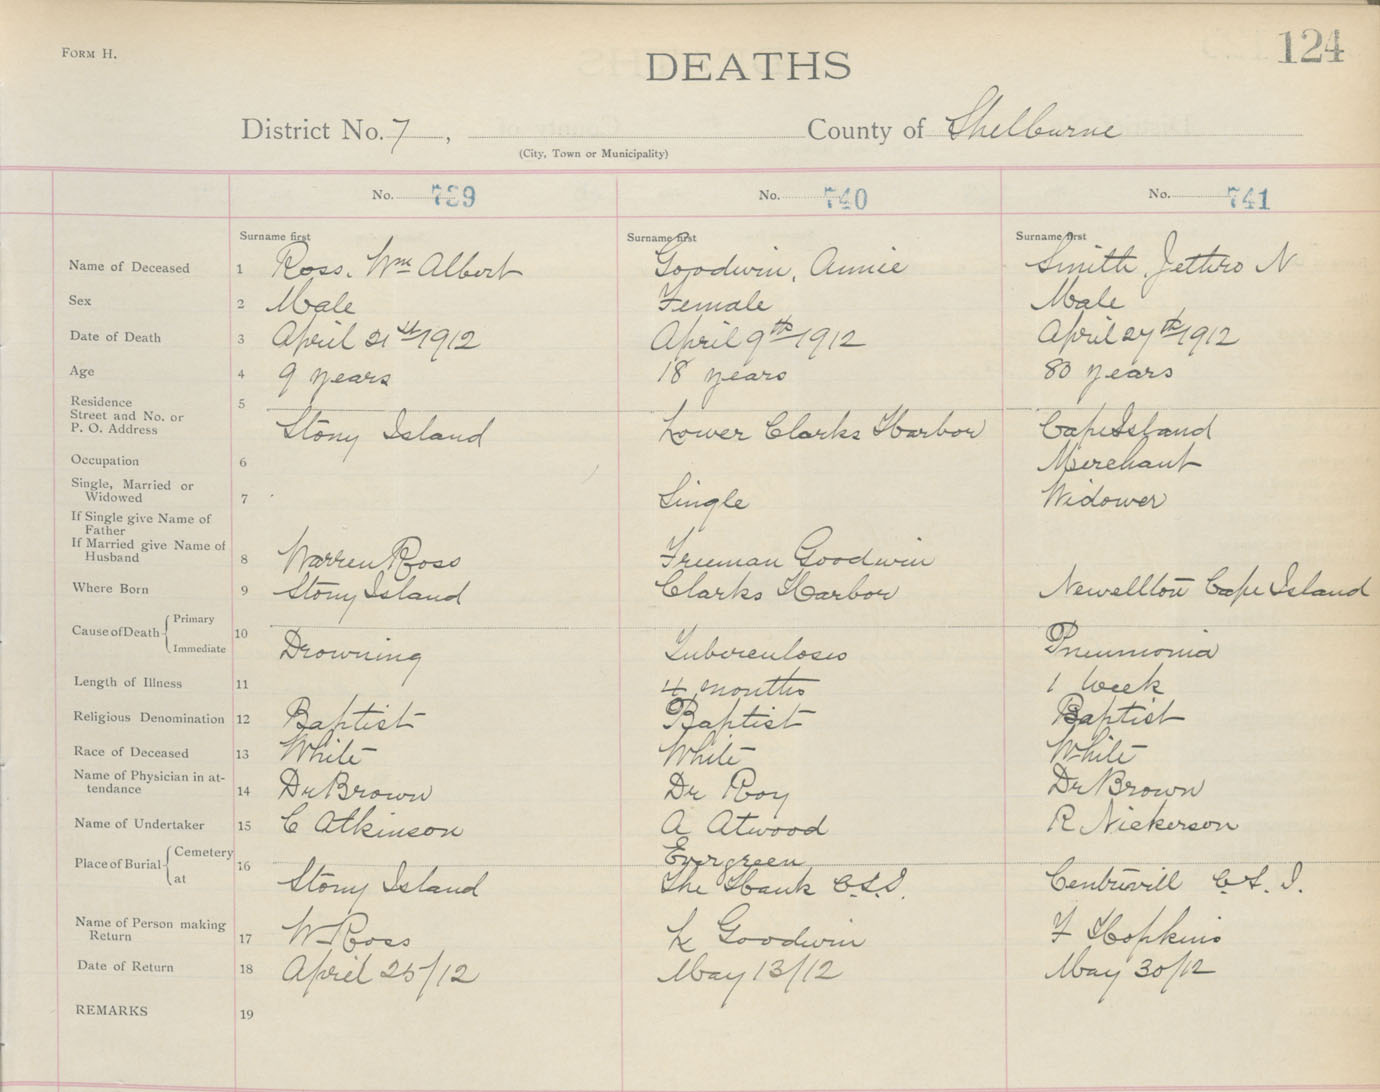 FORM H.
124
DEATHS
District No. 7, County of Shelburne
(City, Town or Municipality)
No. 739 No. 740 No. 741
Surname first Surname first Surname first
Name of Deceased 1 Ross, Wm Albert Goodwin, Annie Smith, Jethro N
Sex 2 Male Female Male
Date of Death 3 April 21st 1912 April 9th 1912 April 27th 1912
Age 4 9 years 18 years 80 years
Residence 5
Street and No. or
P. O. Address Stony Island Lower Clarks Harbor Cape Island
Occupation 6 Merchant
Single, Married or
Widowed 7 Single Widower
If Single give Name of
Father
If Married give Name of
Husband 8 Warren Ross Freeman Goodwin
Where Born 9 Stony Island Clarks Harbor Newellton Cape Island
Cause of Death Primary 10
Immediate Drowning Tuberculosis Pneumonia
Length of Illness 11 4 months 1 week
Religious Denomination 12 Baptist Baptist Baptist
Race of Deceased 13 White White White
Name of Physician in at-
tendance 14 Dr Brown Dr Roy Dr Brown
Name of Undertaker 15 C Atkinson A Atwood R Nickerson
Place of Burial Cemetery 16 Evergreen
at Stony Island The Hauk C.S.I. Centrevill C.S. I.
Name of Person making
Return 17 W Ross L Goodwin F Hopkins
Date of Return 18 April 25/12 May 13/12 May 30/12
REMARKS 19